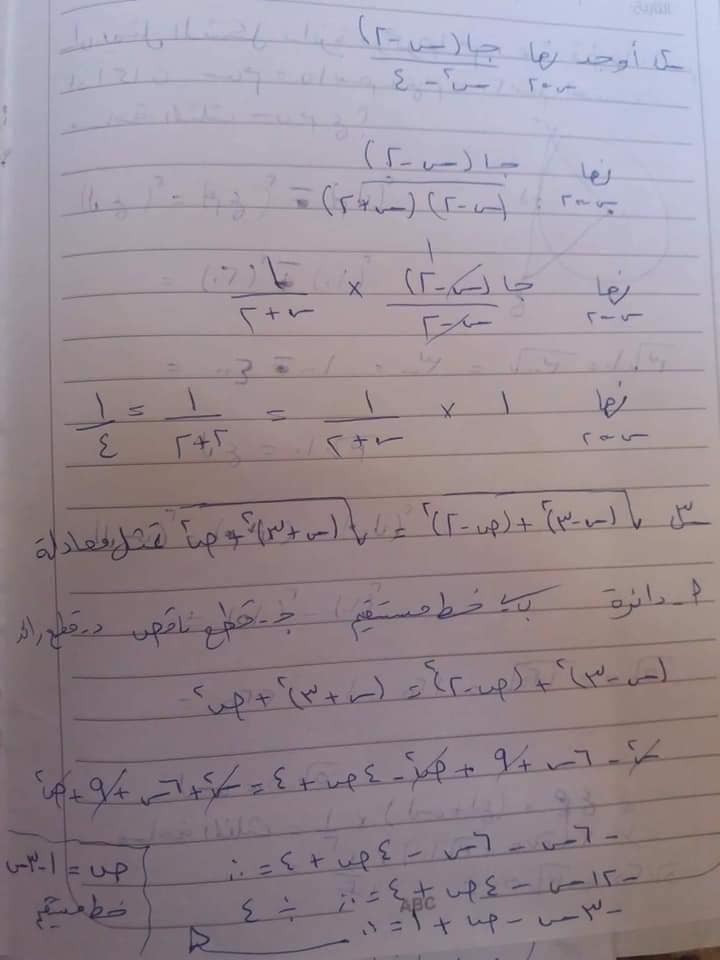 س٢ أوجد نها جا(س-٢) / س٢-٤
س→٢
نها جا(س-٢) / (س-٢)(س+٢)
س→٢
نها جا(س-٢) / س-٢ × ١ / س+٢
س→٢
نها ١ × ١ / س+٢ = ١ / ٢+٢ = ١ / ٤
س→٢
س٣ √(س-٣)²+(ص-٢)² = √(س+٣)²+ص² تمثل معادلة
٢- دائرة ب- خط مستقيم جـ- قطع ناقص د- قطع زائد
(س-٣)²+(ص-٢)² = (س+٣)²+ص²
س²-٦س+٩+ص²-٤ص+٤=س²+٦س+٩+ص²
-٦س-٦س-٤ص+٤=٠
-١٢س-٤ص+٤=٠ ÷ ٤
-٣س-ص+١=٠
ص=١-٣س
خط مستقيم
ABC